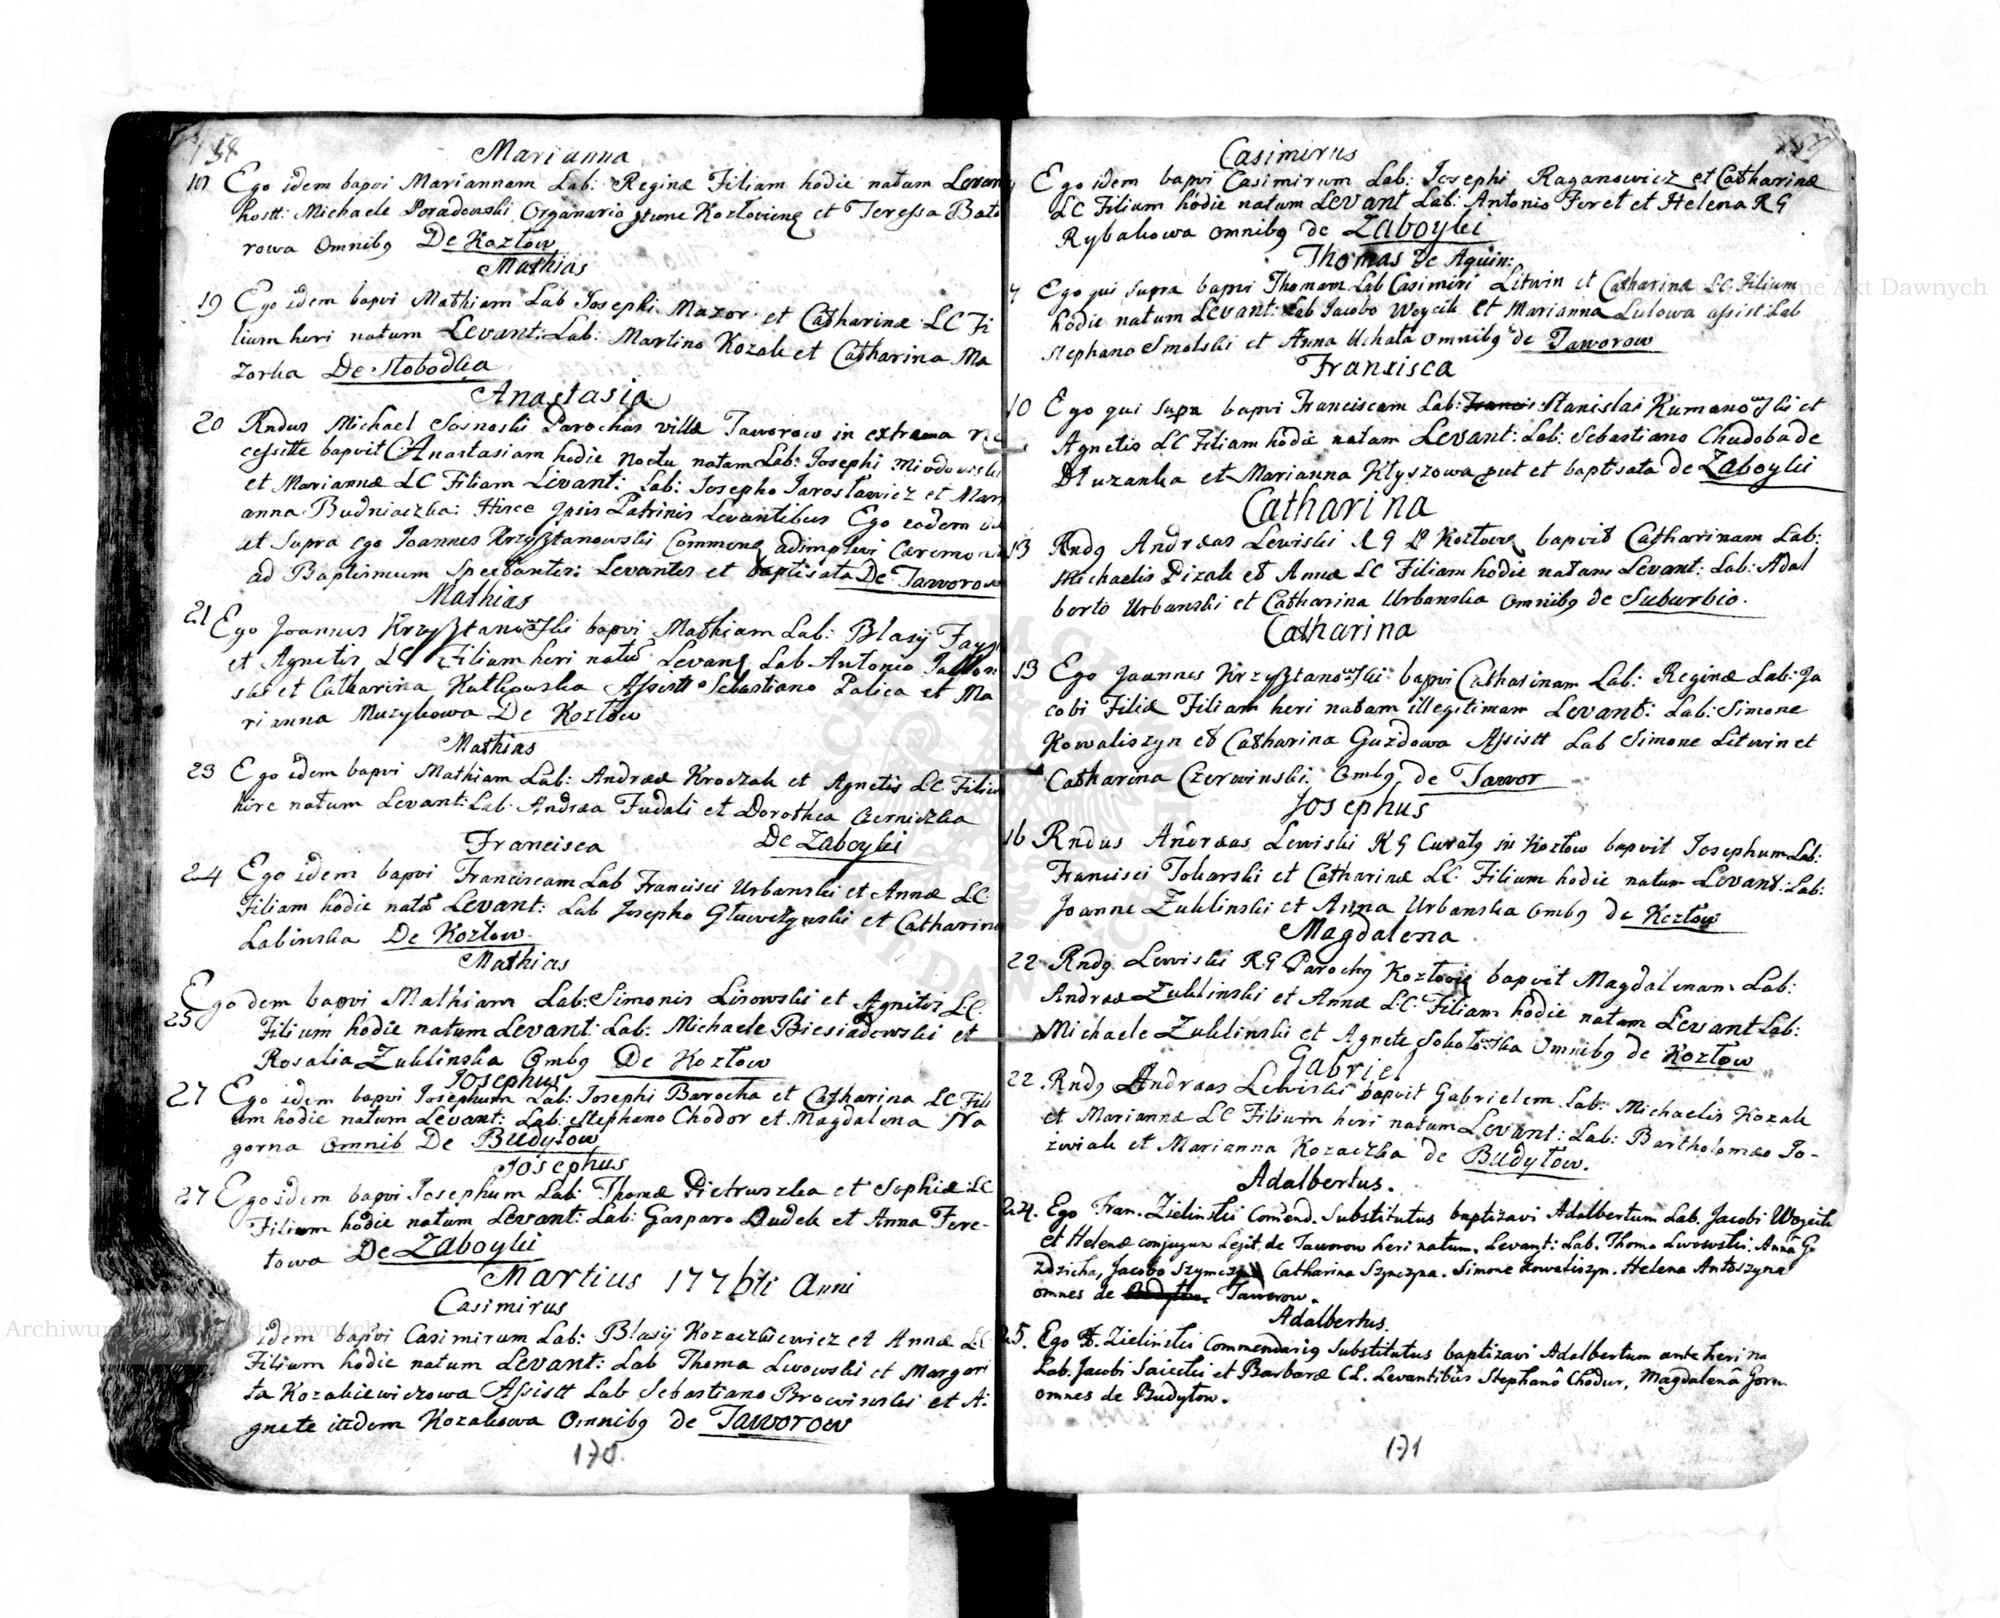 158
Marianna
Ego idem bapvi Mariannam Lab: Reginæ Filiam hodie natam Levan
hostt: Michaele Poradowski Organario Kozłoviens et Teressa Bato
rowa Omnibq De Kozłow
Mathias
19 Ego idem bapvi Mathiam Lab Josephi Mazor et Catharinæ LC Fi
lium heri natum Levant: Lab: Martino Kozak et Catharina Ma
zorka De Slobodka
Anastasia
20 Rndus Michael Sosnoski Parochus villæ Taworow in extrema
cessitte bapvit Anastasiam hodie Noctu natam Lab: Josephi
et Mariannæ LC Filiam Levant: Lab: Josepho Jarosławicz et Mari
anna Budniaczka: Hisce ipsis Patrinis Levantibus Ego eodem
ut Supra ego Joannes Krzysztanowski Commend adimplevi Cæremoni
ad Baptismum Spectantes: Levantes et baptisata De Taworow
Mathias
21 Ego Joannes Krzysztanowski bapvi Mathiam Lab: Blasij
et Agnetis LC Filium heri natū Levant Lab Antonio
ski et Catharina Kutkowska Assistt Sebastiano Palica et Ma
rianna Muzykowa De Kozłow
Mathias
23 Ego idem bapvi Mathiam Lab: Andreæ Kroczak et Agnetis LC Filium
hire natum Levant: Lab: Andrea Fudali et Dorothea Czerniczka
De Zaboyki
Francisca
24 Ego idem bapvi Franciscam Lab Francisci Urbanski et Annæ LC
Filiam hodie natā Levant: Lab Josepho et Catharina
Labinska De Kozłow
Mathias
Ego dem bapvi Mathiam Lab: Simonis Lisowski et Agnitis LC
25 Filium hodie natum Levant: Lab: Michaele Biesiadowski et
Rosalia Zuklinska Ombq De Kozłow
Josephus
27 Ego idem bapvi Josephum Lab: Josephi Barocha et Catharina LC Fili
um hodie natum Levant: Lab: Stephano Chodor et Magdalena Na
gorna Omnib De Budyłow
Josephus
27 Ego idem bapvi Josephum Lab: Thomæ Pietruszka et Sophiæ LC
Filium hodie natum Levant: Lab: Gasparo Dudek et Anna Fere-
towa De Zaboyki
Martius 1776ti Anni
Casimirus
idem bapvi Casimirum Lab: Blasij Kozaczkiewicz et Annæ LC
Filium hodie natum Levant: Lab Thoma Lwowski et Margari
ta Kozakiewiczowa Assistt Lab Sebastiano Browinski et A:
gnete itidem Kozakowa Omnibq de Taworow
170.
Casimirus
Ego idem bapvi Casimirum Lab: Josephi Raganowicz et Catharinæ
LC Filium hodie natum Levant Lab: Antonio Feret et Helena RG
Rybakowa Omnibq de Zaboyki
Thomas De Aquin:
7 Ego qui Supra bapvi Thomam Lab Casimiri Litwin et Catharinæ LC Filium
hodie natum Levant: Lab Jacobo Woycik et Marianna Lulowa assist: Lab
Stephano Smolski et Anna Uchata Omnibq de Taworow
Fransisca
10 Ego qui Supa bapvi Franciscam Lab: Francis Stanislai Kumanowski et
Agnetis LC Filiam hodie natam Levant: Lab: Sebastiano Chudoba de
Dluzanka et Marianna Kłyszowa put et baptisata de Zaboyki
Catharina
13 Rndq Andræas Lewiski RG Kozłows bapvit Catharinam Lab:
Michaelis Pizak et Annæ LC Filiam hodie natam Levant: Lab: Adal
berto Urbanski et Catharina Urbanska Omnibq de Suburbio.
Catharina
13 Ego Joannes Krzysztanowski bapvi Catharinam Lab: Reginæ Lab: Ja
cobi Filiæ Filiam heri natam illegitimam Levant: Lab: Simone
Kowaliszyn et Catharina Guzdowa Assistt Lab Simone Litwin et
Catharina Czerwinski Ombq. de Tawor
Josephus
16 Rndus Andræas Lewiski RG Curatq in Kozłow bapvit Josephum Lab:
Francisci Tokarski et Catharinæ LC Filium hodie natum Levant: Lab:
Joanne Zuklinski et Anna Urbanska Ombq de Kozłow
Magdalena
22 Rndq Lewiski RG Parochq Kozłovie bapvit Magdalenam Lab:
Andreæ Zuklinski et Annæ LC: Filiam hodie natam Levant Lab:
Michaele Zuklinski et Agnete Sokołowska Omnibq de Kozłow
Gabriel
22. Rndq Andræas Lewiski bapvit Gabrielem Lab: Michaelis Kozak
et Mariannæ LC Filium heri natum Levant: Lab: Bartholomæo To-
zwiak et Marianna Kozaczka de Budyłow.
Adalbertus.
24. Ego Fran. Zielinski Comend. Substitutus baptizavi Adalbertum Lab. Jacobi Woycik
et Helenæ conjugun Lejit. de Taworow heri natum. Levant: Lab. Thoma Lwowski. Anna G
zdzicha, Jacobo Catharina Szynczyna. Simone Kowaliszyn. Helena Antoszyna
omnes de Budyłow. Taworow.
Adalbertus.
25. Ego F. Zielinski Commendariq Substitutus baptizavi Adalbertum ante heri na
Lab. Jacobi Saiecki et Barbaræ CL. Levantibus Stephanô Chodur, Magdalenâ Gorn
omnes de Budyłow.
171